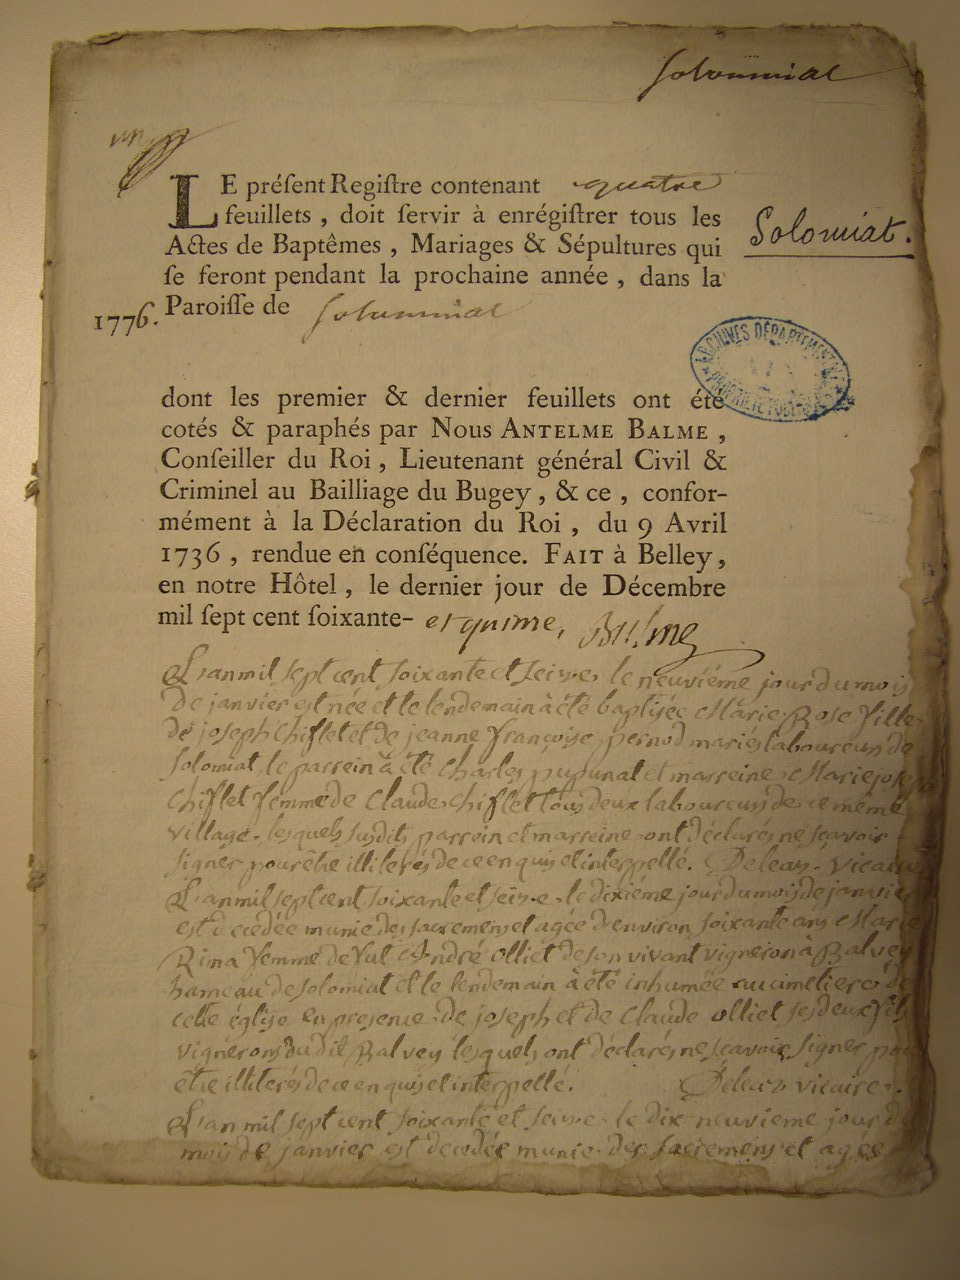 Solommial
un
LE préſent Regiſtre contenant quatre
feuillets , doit ſervir à enrégiſtrer tous les
Actes de Baptêmes , Mariages & Sépultures qui
ſe feront pendant la prochaine année , dans la
Paroiſſe de Solommial
Solomiat.
1776.
ARCHIVES DÉPARTEMENT
dont les premier & dernier feuillets ont été
cotés & paraphés par Nous ANTELME BALME ,
Conſeiller du Roi , Lieutenant général Civil &
Criminel au Bailliage du Bugey , & ce , confor-
mément à la Déclaration du Roi , du 9 Avril
1736 , rendue en conſéquence. FAIT à Belley ,
en notre Hôtel , le dernier jour de Décembre
mil ſept cent ſoixante- et quinze, Balme
L'an mil sept cent soixante et seize le neuvième jour du mois
de janvier est née et le lendemain à été baptisée Marie Rose fille
de joseph Chiflet et de jeanne françoise pernod mariés laboureurs de
Solomiat, le parrein à été Charles pupunat et marreine Marie joseph
Chiflet femme de Claude Chiflet tous deux laboureurs de ce même
village. lesquels susdits parrein et marreine ont déclarés ne sçavoir
signer pour être illiterés de ce enquis et interpellé. Deleas Vicaire
L'an mil sept cent soixante et seize le dixième jour du mois de janvier
est decedée munie des sacremens et agée d'environ soixante ans Marie
Rina femme de fut André olliet de son vivant vigneron à Balvey
hameau de solomiat et le lendemain à été inhumée au cimetiere de
cette église en presence de joseph et de Claude olliet ses deux fils
vignerons dudit Balvey lesquels ont déclarés ne sçavoir signer pour
être illiterés de ce enquis et interpellé. Deleas vicaire.
L'an mil sept cent soixante et seize le dix neuvieme jour du
mois de janvier est decedée munie des sacremens et agée